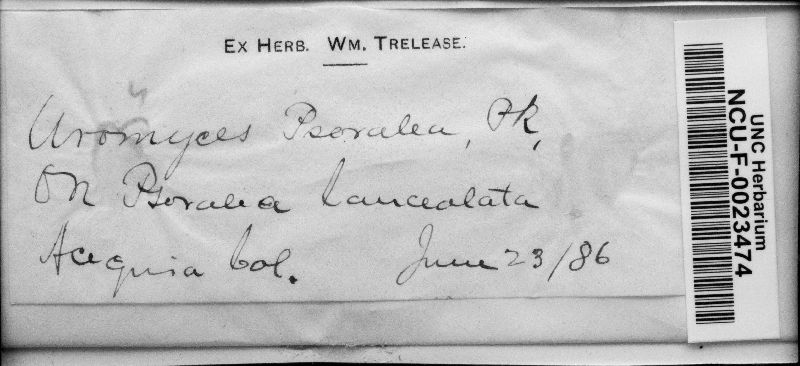 Ex Herb. Wm. Trelease.
Uromyces Psoralea, Pk,
On Psoralea lanceolata
Acequia Col. June 23/86
UNC Herbarium
NCU-F-0023474